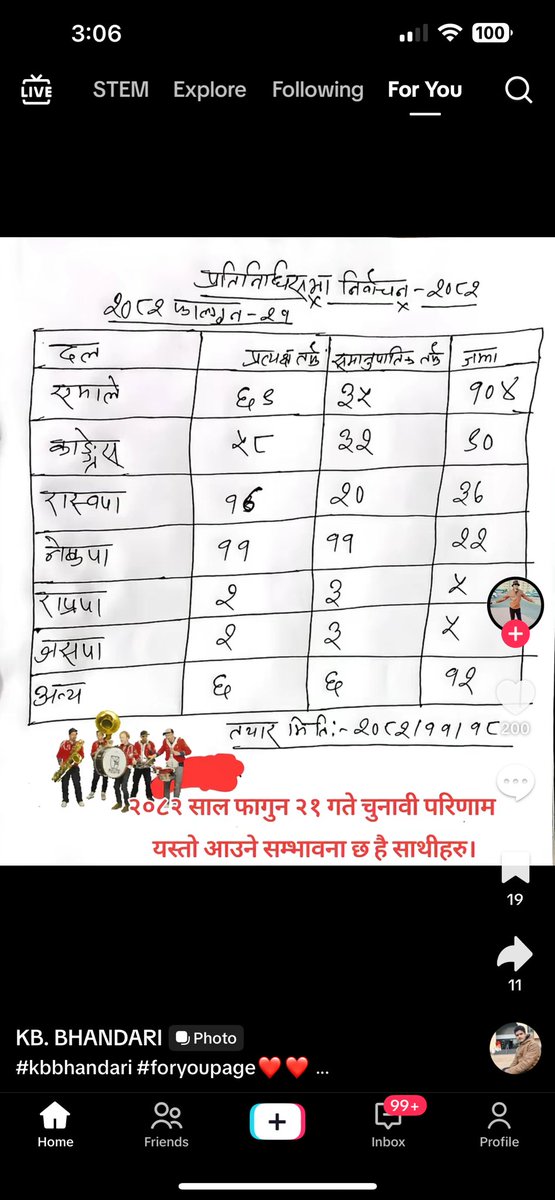 3:06
100
LIVE STEM Explore Following For You
प्रतिनिधिसभा निर्वाचन - २०८२
२०८२ फाल्गुन - २१
दल प्रत्यक्ष तर्फ समानुपातिक तर्फ जम्मा
एमाले ६९ ३५ १०४
काङ्ग्रेस ५८ ३२ ९०
रास्वपा १७ २० ३७
नेकपा ११ ११ २२
राप्रपा २ ३ ५
जसपा २ ३ ५
अन्य ६ ६ १२
तयार मिति:- २०८२/११/१८
200
२०८२ साल फागुन २१ गते चुनावी परिणाम
यस्तो आउने सम्भावना छ है साथीहरु।
19
11
KB. BHANDARI Photo
#kbbhandari #foryoupage❤️❤️ ...
99+
Home Friends Inbox Profile